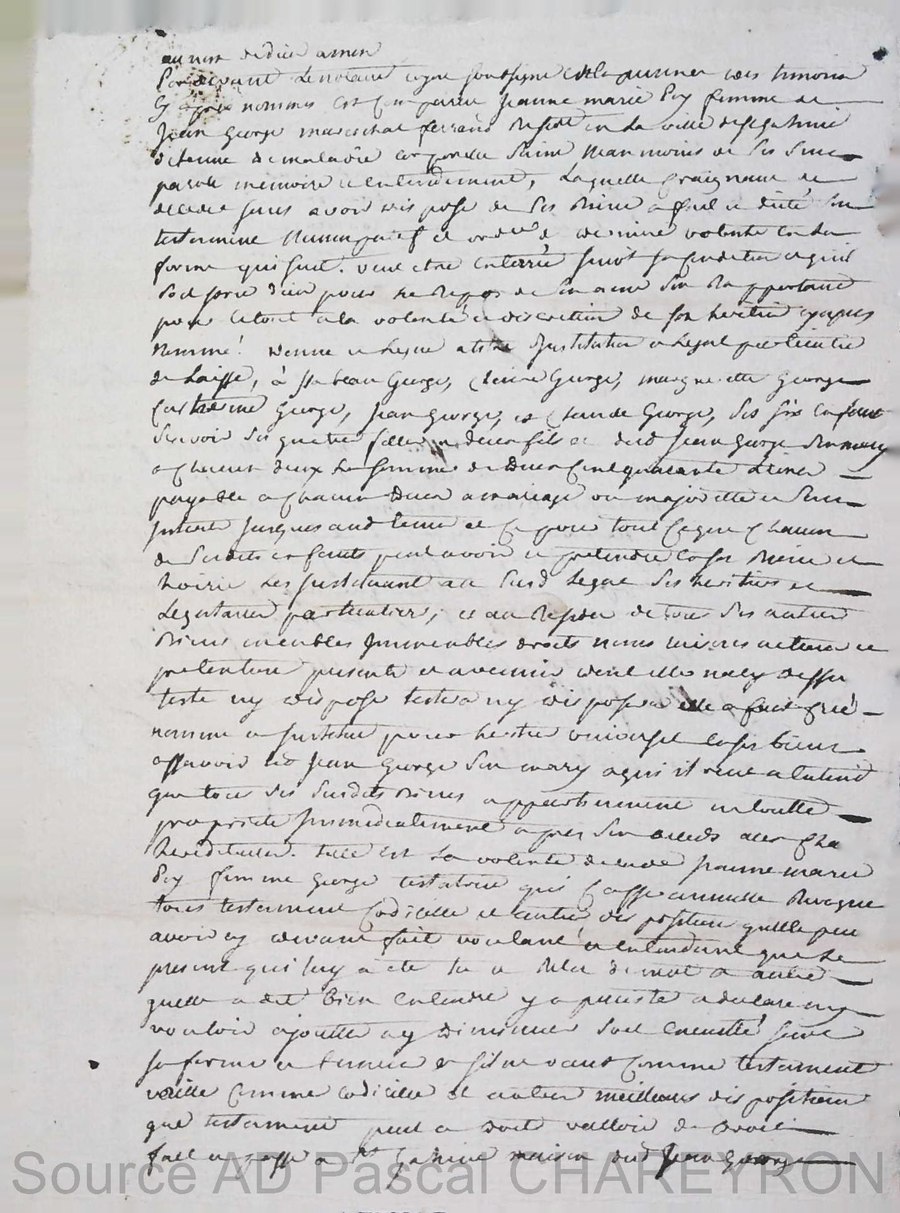 au nom de dieu amen
Pardevant le notaire royal soussigné et la presence des temoins
cy apres nommes est comparue Jeanne marie Pey femme de
Jean George mareschal ferrand Resid en la ville de St
detenue de maladie corporelle saine neanmoins de ses sens
parole memoire et entendement, laquelle craignant de
deceder sans avoir dispose de ses Biens a fait et dicté son
testament nuncupatif et ord de derniere volonté en la
forme qui suit. veut etre enterrée suivt sa condition et quil
soit prie dieu pour le Repos de son ame sen Rapportant
pour le tout a la volonté et discretion de son heritier cyapres
nommé! donne et legue a titre dInstitution et legat particulier
delaisse, à Isabeau George, George, margueritte George
Catherine George, Jean George, et Claude George, ses six enfans
scavoir ses quatre filles et deux fils et dud Jean George son mary
a Chacun deux la somme de deux cent quarante livres
payable a chacun deux a mariage ou majorité et sans
interet jusques aud tems et ce pour tout ce que chacun
de sesdits enfants peut avoir et pretendre en ses Biens et
hoirie les instituant au susd legat ses heritiers et
Legataires particuliers; et au Residu de tous ses autres
Biens meubles Immeubles droits noms raisons actions et
pretentions presents et avenir dont elle na cy dessus
testé ny dispose testera ny disposera elle a fait créé
nomme et institue pour heritier universel en ses biens
assavoir led Jean George son mary a qui il veut et entend
que tous ses susdits Biens appartiennent en toutte
propriete Immediatement apres son deceds avec
hereditaire. telle est la volonté de lade Jeanne marie
Pey femme George testatrice qui casse annulle Revoque
tous testament codicille et autre disposition quelle peut
avoir cy devant fait voulant et entendant que le
present qui luy a été lu et Relu de mot a autre
quelle a dit bien entendre y a persisté et declare ny
vouloir ajoutter ny diminuer soit executté suivt
sa forme et teneur et sil ne vaut comme testament
vaille comme codicille et autres meilleures disposition
que testament peut et doit valloir de droit
fait et passé a St maison dud Jean George
Source AD Pascal CHAREYRON